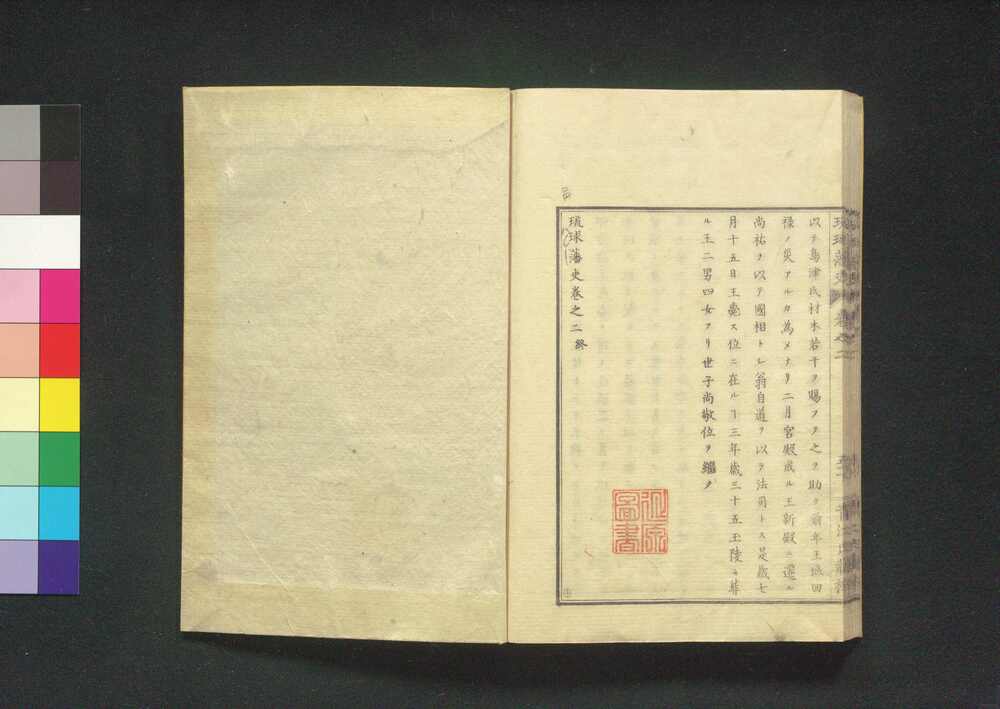 以テ島津氏材木若干ヲ賜フテ之ヲ助ク前年王城回
祿ノ災アルカ為メナリ二月宮殿成ル王新殿ニ遷ル
尚祐ヲ以テ國相トシ翁自道ヲ以テ法司トス是歳七
月十五日王薨ス位ニ在ルヿ三年歳三十五王陵ニ葬
ル王二男四女アリ世子尚敬位ヲ繼ク
琉球藩史卷之二終